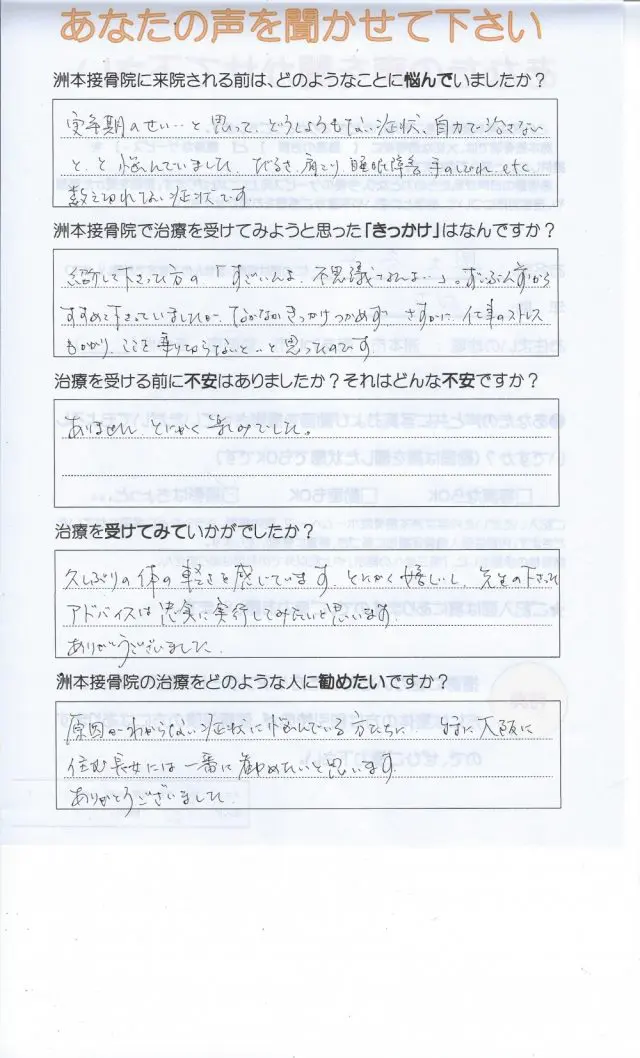 あなたの声を聞かせて下さい
洲本接骨院に来院される前は、どのようなことに悩んでいましたか？
更年期のせい…と思って、どうしようもない症状、自力で治さない
と、と悩んでいました。だるさ、肩こり、睡眠障害、手のしびれ、etc
数えきれない症状です。
洲本接骨院で治療を受けてみようと思った「きっかけ」はなんですか？
紹介して下さった方の「すごいんよ、不思議なんよ…」。ずいぶん前から
すすめて下さっていましたが、なかなかきっかけつかめず、さすがに、仕事のストレス
もかかり、ここを乗りきらないと…と思ったのです
治療を受ける前に不安はありましたか？それはどんな不安ですか？
ありません。とにかく楽しみでした。
治療を受けてみていかがでしたか？
久しぶりの体の軽さを感じています。とにかく嬉しいし、先生の下さった
アドバイスは忠実に実行してみたいと思います。
ありがとうございました。
洲本接骨院の治療をどのような人に勧めたいですか？
原因がわからない症状に悩んでいる方たちに。特に大阪に
住む長女には一番に勧めたいと思います。
ありがとうございました。